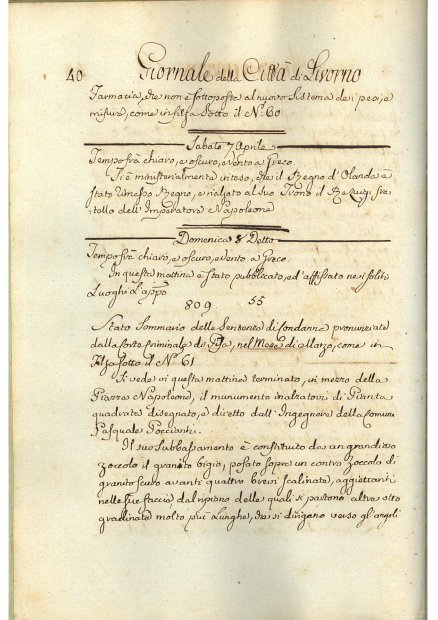 40 Giornale della Città di Livorno
Farmacia, che non è sottoposta al nuovo Sistema dei pesi, e
misure, come in filza sotto il N.º 60
Sabato 7 Aprile
Tempo frà chiaro, e oscuro, e vento a Greco.
Si è ministerialmente inteso, che il Regno d'Olanda è
stato rimesso Regno, e rialzato al suo Trono il Re Luigi fra-
tello dell'Imperatore Napoleone
Domenica 8 Detto
Tempo frà chiaro, e oscuro, e vento a Greco.
In questa mattina è stato pubblicato, ed affissato nei soliti
Luoghi L'app.º
809 55
Stato Sommario delle Sentenze di condanna pronunziate
dalla Corte Criminale di Pisa, nel Mese di Marzo, come in
Filza sotto il N.º 61
Si vede in questa mattina terminato, in mezzo della
Piazza Napoleone, il munumento inalzatovi di Pianta
quadrata disegnato, e diretto dall'Ingegnere della Comune
Pasquale Poccianti.
Il suo Subbassamento è constituito da un grandioso
zoccolo di granito bigio, posato sopra un contro Zoccolo di
granito scuro avanti quattro brevi scalinate, aggiustanti
nelle sue faccie, dal ripiano delle quali si partono altre otto
gradinate molto più Lunghe, che si dirigano verso gl'angoli